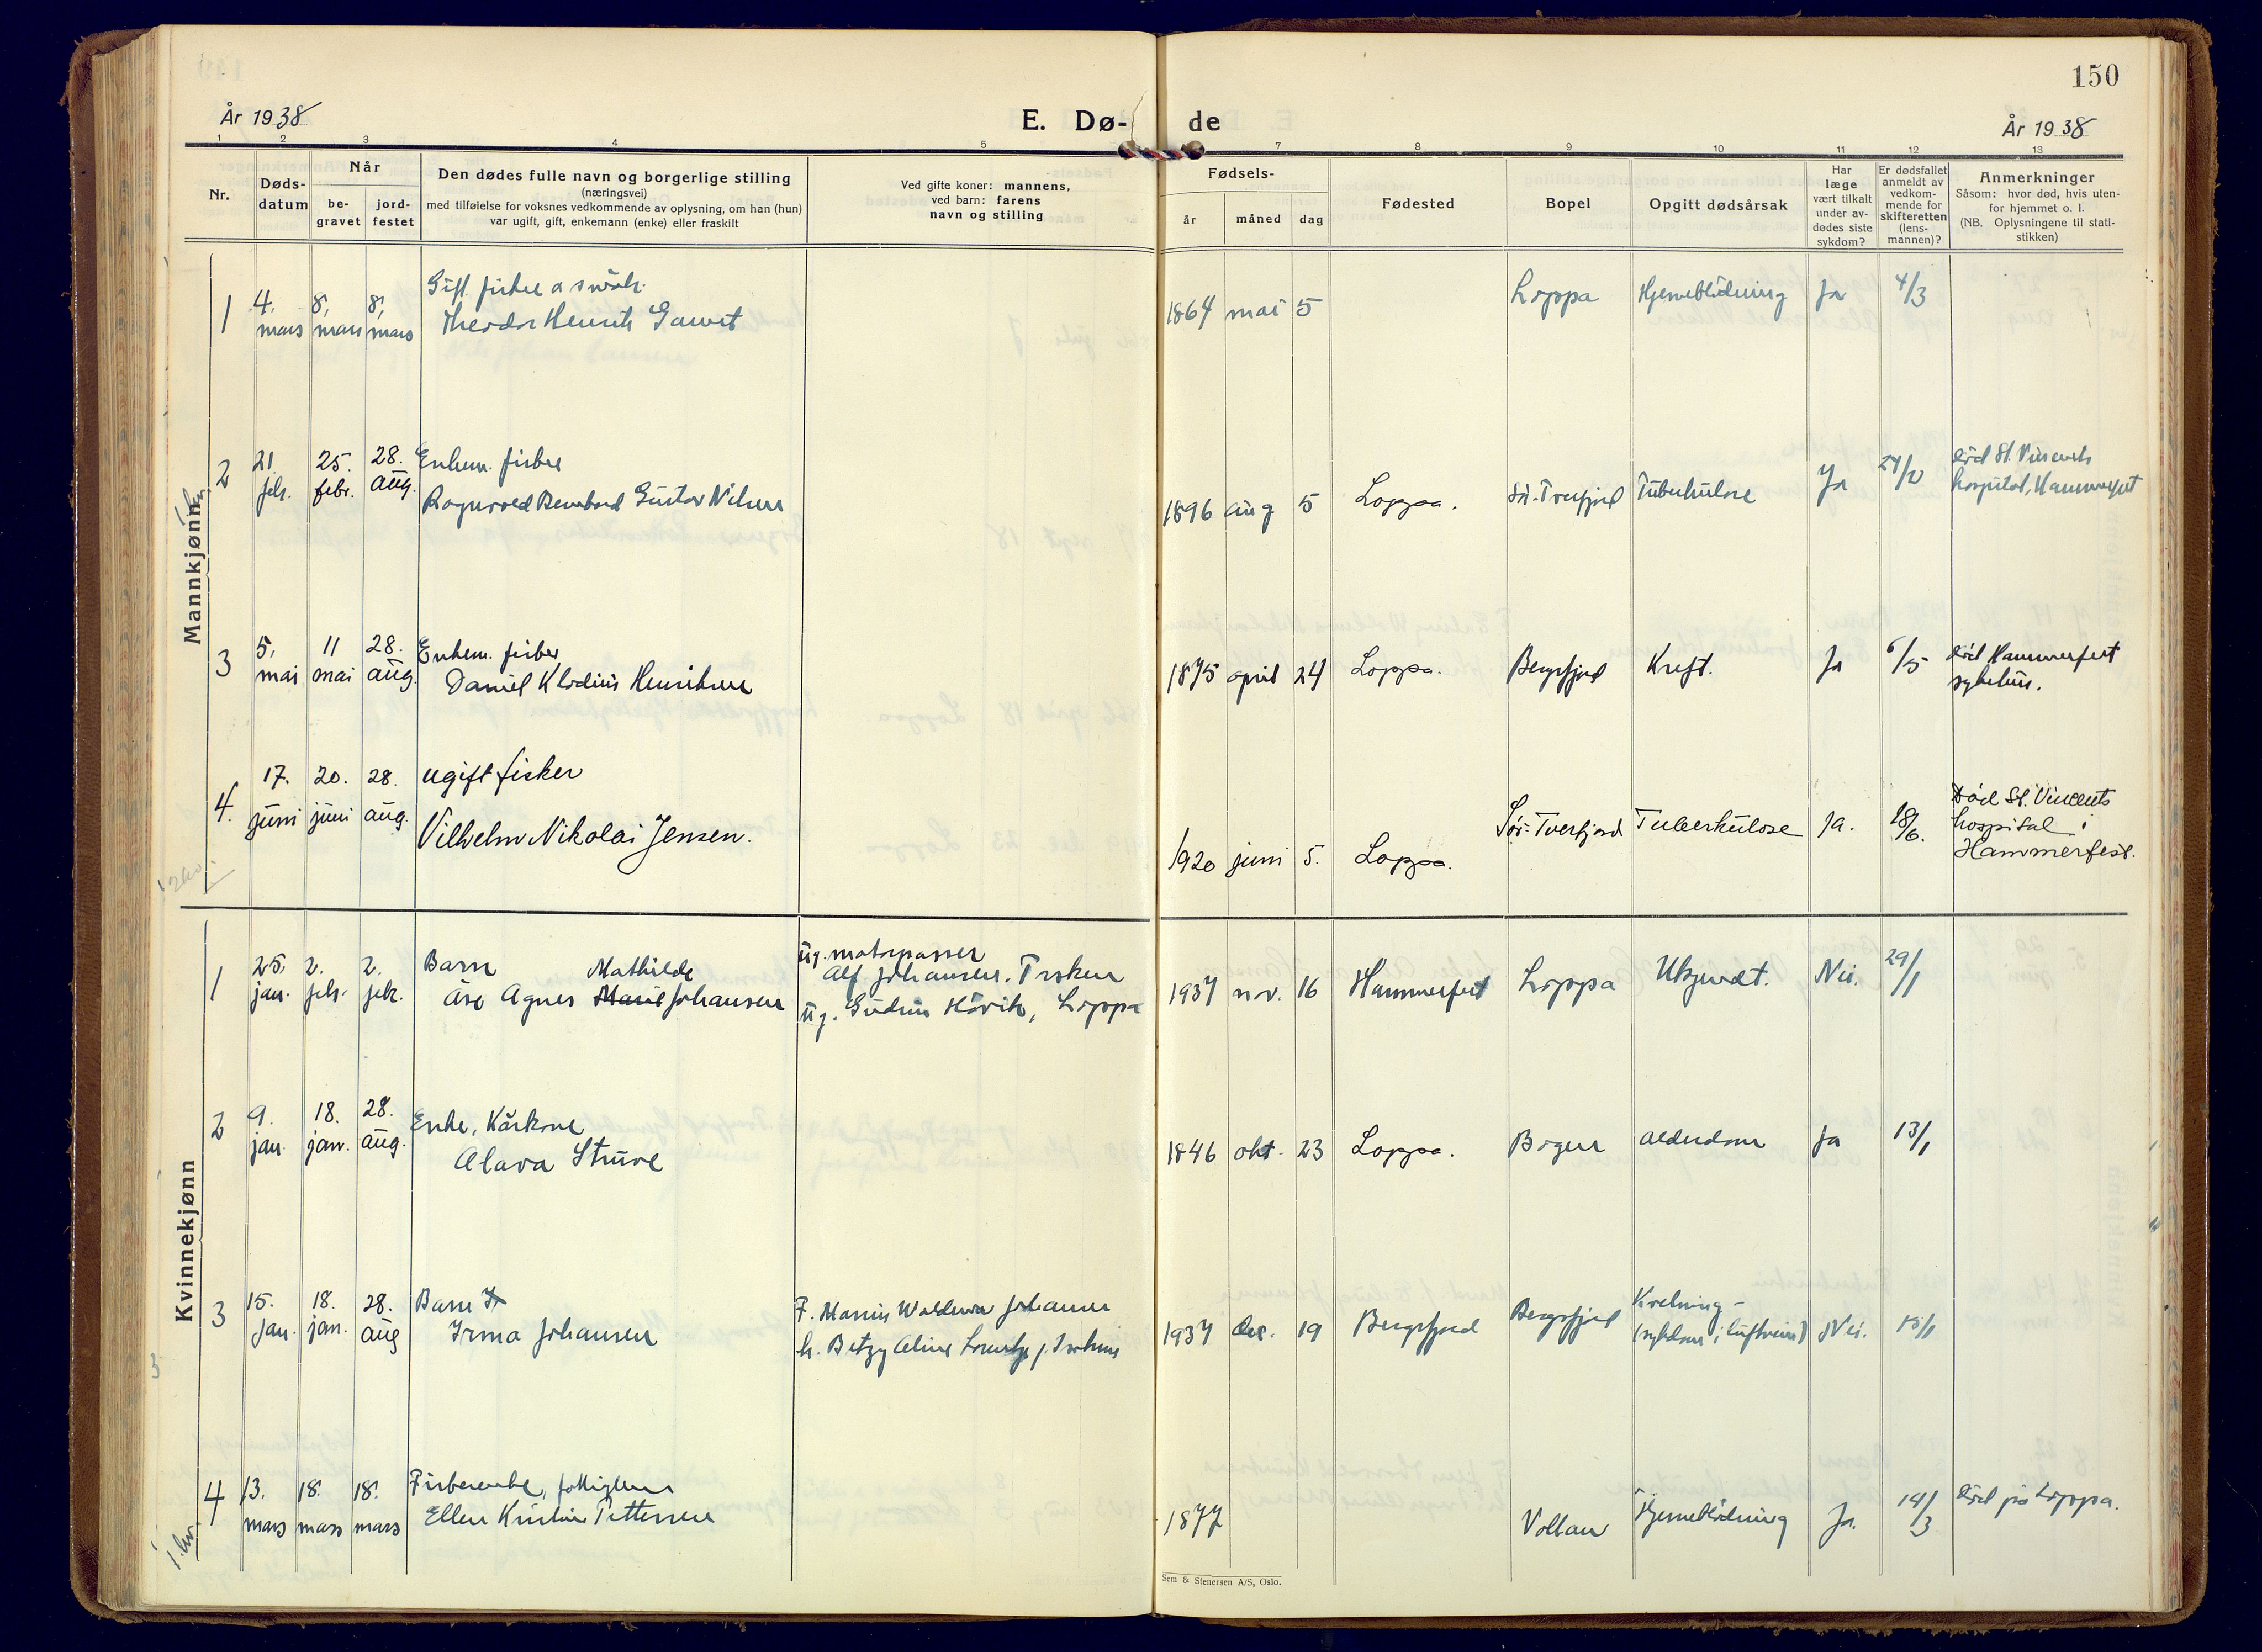 150
År 1938
E. Dø-
de
År 1938
1 2 3 4 5 7 8 9 10 11 12 13
Nr.
Døds-
datum
Når
be-
gravet
jord-
festet
Den dødes fulle navn og borgerlige stilling
(næringsvei)
med tilføielse for voksnes vedkommende av oplysning, om han (hun)
var ugift, gift, enkemann (enke) eller fraskilt
Ved gifte koner: mannens,
ved barn: farens
navn og stilling
Fødsels-
år måned dag
Fødested
Bopel
Opgitt dødsårsak
Har
læge
vært tilkalt
under av-
dødes siste
sykdom?
Er dødsfallet
anmeldt av
vedkom-
mende for
skifteretten
(lens-
mannen)?
Anmerkninger
Såsom: hvor død, hvis uten-
for hjemmet o. l.
(NB. Oplysningene til stati-
stikken)
Mannkjønn
1
4. mars
8. mars
8. mars
Gift fisker
Theodor Henrik
1864 mai 5
Loppa
Hjerneblødning
Ja
4/3
2
21. febr.
25. febr.
28. aug.
Enkem. fisker
Bernhard Gustav Nilsen
1896 aug 5
Loppa.
Sør-Tverfjord
Tuberkulose
Ja
død St. Vincents
hospital, Hammerfest
3
5. mai
11 mai
28. aug.
Enkem. fisker
Daniel Klodius Henriksen
1875 april 24
Loppa.
Bergsfjord
Kreft.
Ja
6/5
død Hammerfest
sykehus.
4.
17. juni
20. juni
28. aug.
ugift fisker
Vilhelm Nikolai Jensen.
1920 juni 5.
Loppa.
Sør-Tverfjord
Tuberkulose
Ja.
18/6.
Død St. Vincents
hospital i
Hammerfest.
Kvinnekjønn
1
25. jan.
2. febr.
2. febr.
Barn
Mathilde
Åse Agnes Marie Johansen
ug. motorpasser
Alf Johansen,
ug. Gudrun Hårvik, Loppa
1937 nov. 16
Hammerfest
Loppa
Ukjendt.
Nei.
29/1
2
9. jan.
18. jan.
28. aug.
Enke, Kårkone
Alava Struve
1846 okt. 23
Loppa.
Bogen
alderdom
Ja
13/1
3
15. jan.
18. jan.
28. aug
Barn
Irma Johansen
F. Marius Waldemar Johansen
h. Betzy Aline
1937 des. 19
Bergsfjord
Bergsfjord
Kvelning -
(sykdom i luftveier)
Nei.
15/1
4
13. mars
18. mars
18. mars
Fiskerenke,
Ellen Kristine Pettersen
1877
Hjerneblødning
Ja.
14/3
død på Loppa.
Sem & Stenersen A/S, Oslo.